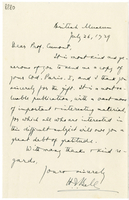 British Museum
July 26, 1929
Dear Prof. Cumont,
It is most kind and gen-
erous of you to send me a copy of
your Cod. Paris. I, and I thank you
sincerely for the gift. It is a most va-
luable publication, with a vast am-
ount of important & interesting material,
for which all who are interested in
this difficult subject will owe you a
great debt of gratitude.
With many thanks & kind re-
gards,
Yours sincerely